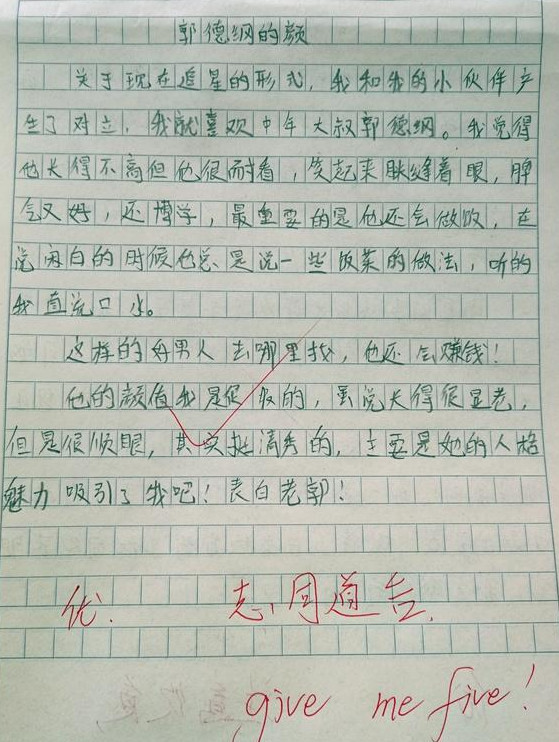 郭德纲的颜
关于现在追星的形式，我和我的小伙伴产
生了对立，我就喜欢中年大叔郭德纲。我觉得
他长得不高但他很耐看，笑起来眯缝着眼，脾
气又好，还博学，最重要的是他还会做饭，在
说相白的时候他总是说一些饭菜的做法，听的
我直流口水。
这样的好男人去哪里找，他还会赚钱！
他的颜值我是很服的，虽说长得很显老，
但是很顺眼，其实挺清秀的，主要是她的人格
魅力吸引了我吧！表白老郭！
优. 志同道合.
give me five!